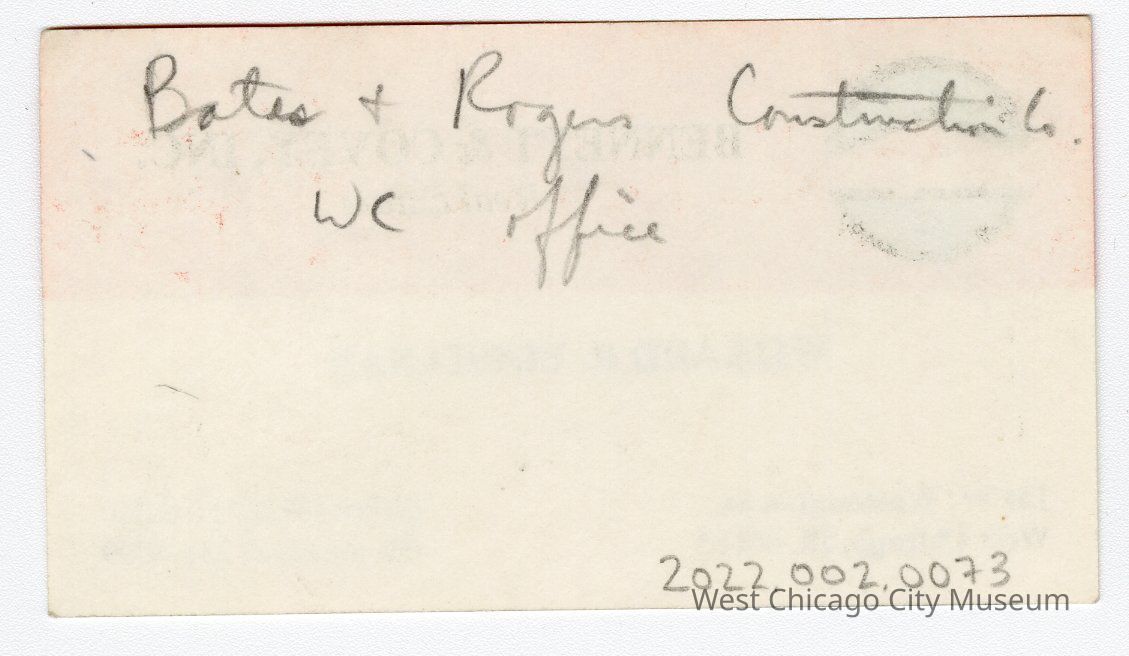 Bates + Rogers Construction Co.
WC office
2022.002.0073
West Chicago City Museum